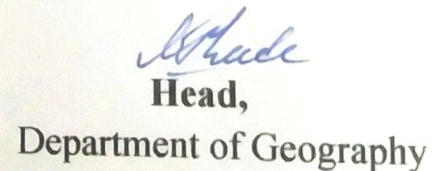 Head,
Department of Geography